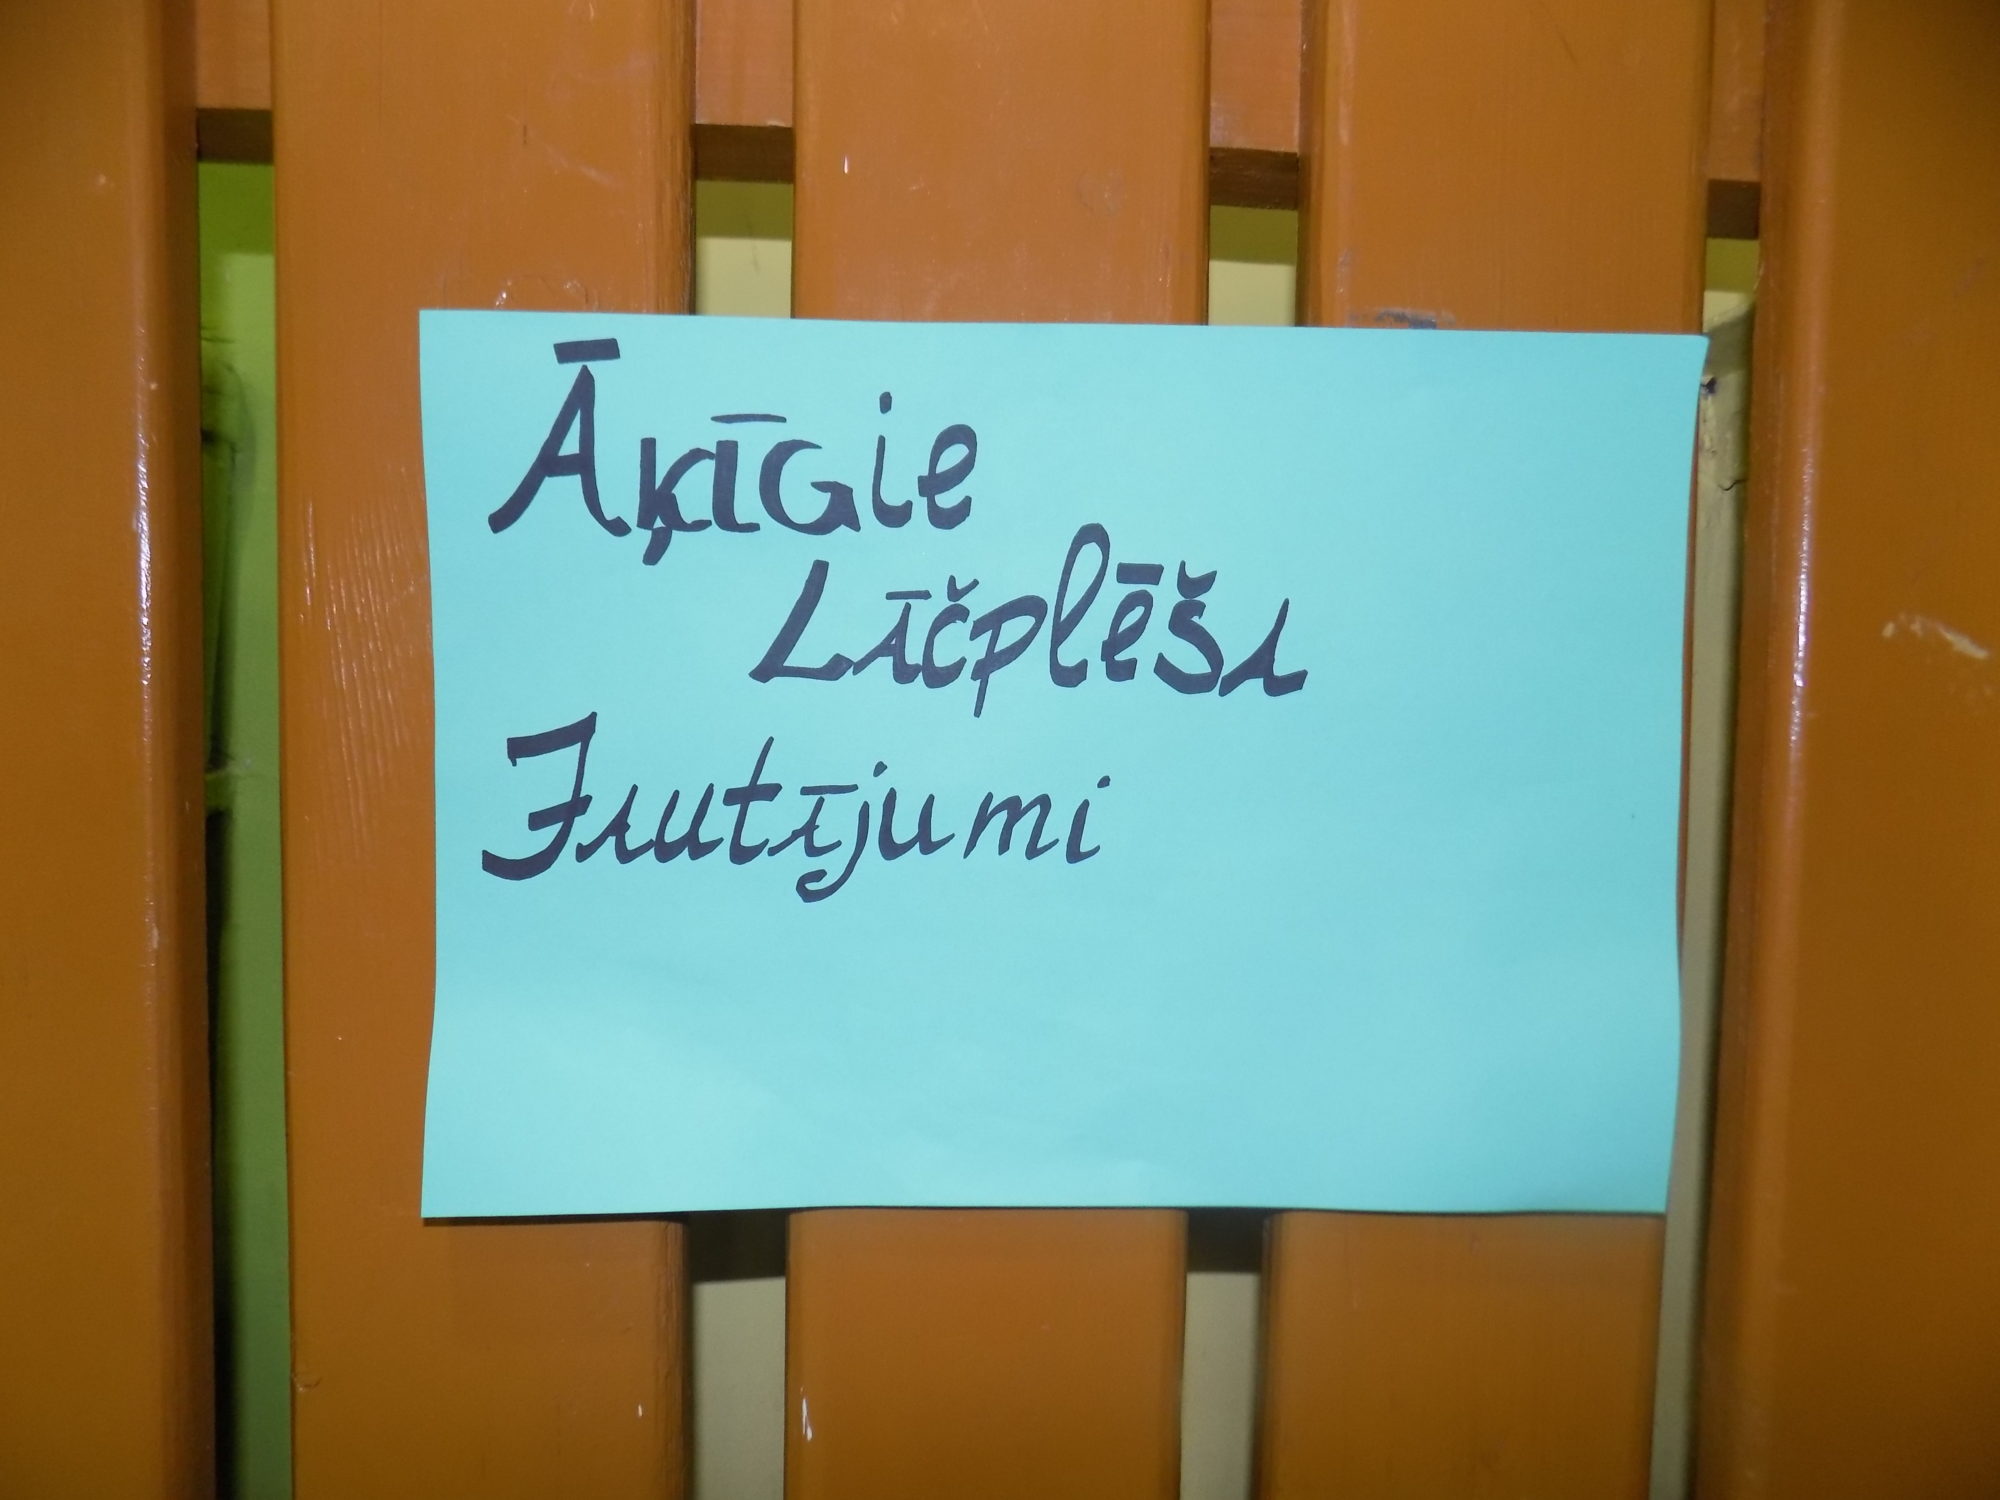 Āķīgie
Lāčplēša
Jautājumi